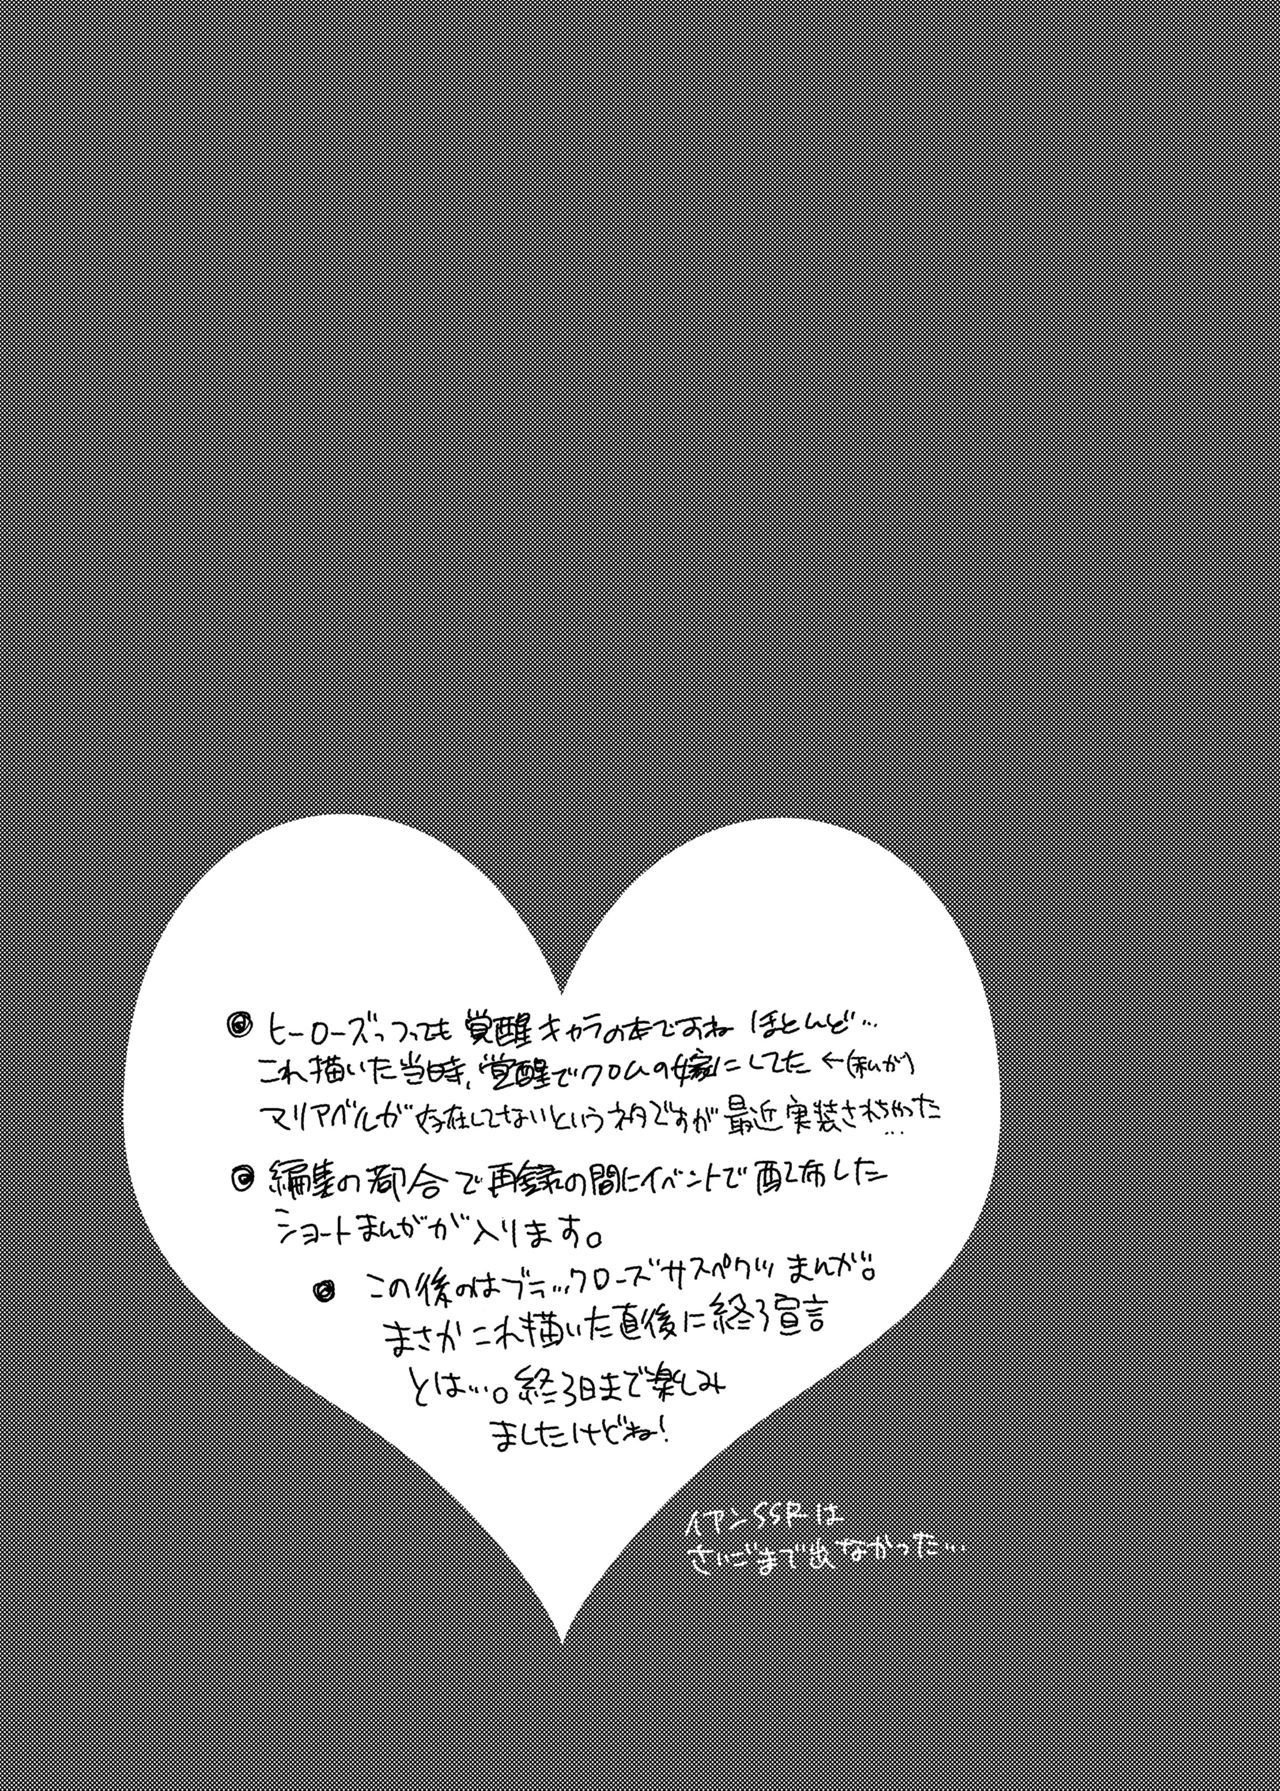 ◎ ヒーローズっつっても覚醒キャラの本ですね ほとんど…
これ描いた当時、覚醒でクロムの嫁にしてた ←(私が)
マリアベルが存在してないというネタですが最近実装されちゃった…
◎ 編集の都合で再録の間にイベントで配布した
ショートまんがが入ります。
◎ この後のはブラックローズサスペクツまんが。
まさかこれ描いた直後に終了宣言
とは…。終了日まで楽しみ
ましたけどね!
イヤンSSRは
さいごまで出なかった…